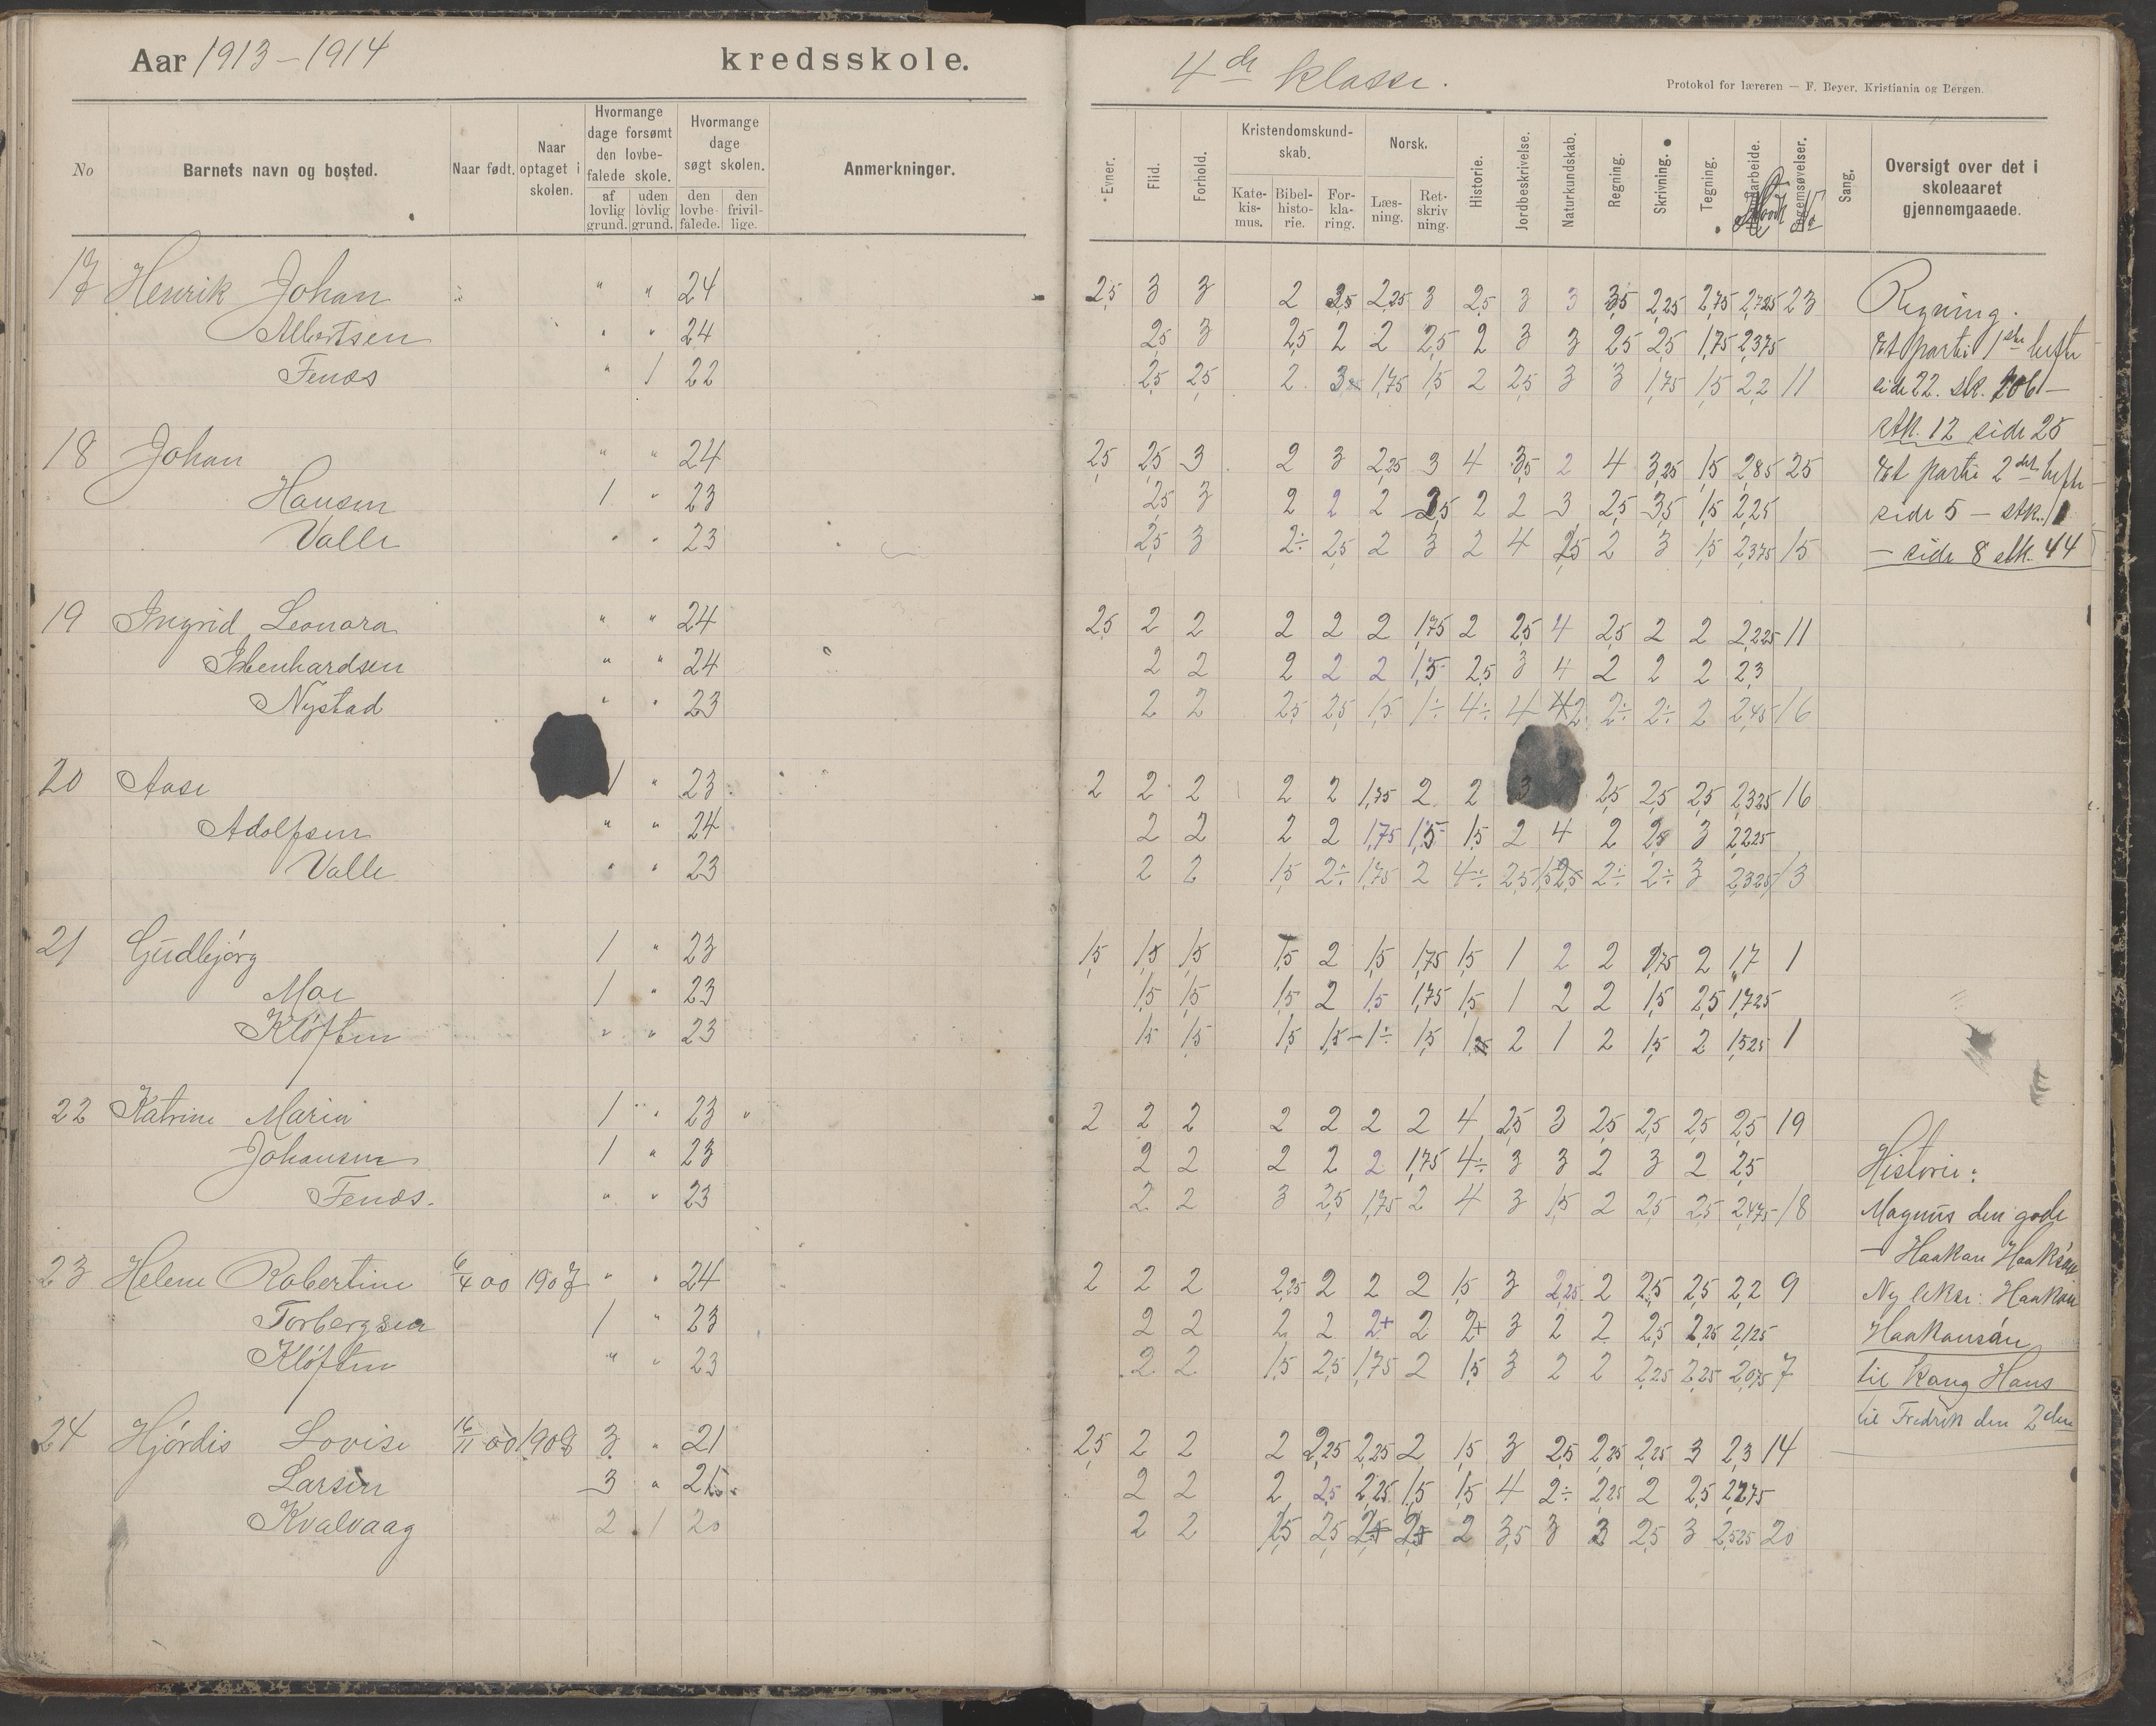 Aar 1913–1914 kredsskole.
4de klasse.
Protokol for læreren — F. Beyer. Kristiania og Bergen.
No Barnets navn og bosted. Naar født. Naar optaget i skolen. Hvormange dage forsømt den lovbefalede skole. af lovlig grund. uden lovlig grund. Hvormange dage søgt skolen. den lovbefalede. den frivillige. Anmerkninger.
Evner. Flid. Forhold. Kristendomskundskab. Katekismus. Bibelhistorie. Forklaring. Norsk. Læsning. Retskrivning. Historie. Jordbeskrivelse. Naturkundskab. Regning. Skrivning. Tegning. Sang. Oversigt over det i skoleaaret gjennemgaaede.
17 Henrik Johan " " 24 2,5 3 3 2 2,25 3 2,5 3 3 3,5 2,25 2,75 2,725 23 Regning.
Albertsen " " 24 2,5 3 2,5 2 2 2,5 2 3 3 2,5 2,5 1,75 2,375 Et parti 1ste hefte
Fenæs " 1 22 2,5 2,5 2 1,75 1,5 2 2,5 3 3 1,75 1,5 2,2 11 side 22. stk. 106 —
stk. 12 side 25
18 Johan " " 24 2,5 2,5 3 2 3 2,25 3 4 3,5 2 4 3,25 1,5 2,85 25 Et parti 2det hefte
Hansen 1 " 23 2,5 3 2 2 2 2 2 3 2,5 3,5 1,5 2,25 side 5 — stk. 1
Valle " " 23 2,5 3 2÷ 2,5 2 3 2 4 2 3 1,5 2,375 15 — side 8 stk. 44
19 Ingrid Leonora " " 24 2,5 2 2 2 2 2 1,75 2 2,5 4 2,5 2 2 2,225 11
Ibenhardsen " " 24 2 2 2 2 2 1,5 2,5 3 4 2 2 2 2,3
Nystad " " 23 2 2 2,5 2,5 1,5 1÷ 4÷ 4 2 2÷ 2÷ 2 2,45 16
20 Aase 1 " 23 2 2 2 2 2 1,75 2 2 3 2,5 2,5 2,5 2,325 16
Adolfsen " " 24 2 2 2 2 1,75 1,5 1,5 2 4 2 3 2,225
Valle " " 23 2 2 1,5 2÷ 1,75 2 4÷ 2,5 2÷ 2÷ 3 2,325 13
21 Gudbjørg 1 " 23 1,5 1,5 1,5 1,5 2 1,5 1,75 1,5 1 2 2 1,75 2 1,7 1
Moe 1 " 23 1,5 1,5 1,5 2 1,5 1,75 1,5 1 2 2 1,5 2,5 1,725
Kløften " " 23 1,5 1,5 1,5 1,5 1÷ 1,5 2 1 2 1,5 2 1,525 1
22 Katrine Marie 1 " 23 2 2 2 2 2 2 2 4 2,5 3 2,5 2,5 2,5 2,5 19
Johansen 1 " 23 2 2 2 2 2 1,75 4÷ 3 3 2 3 2 2,5 Historie:
Fenæs. " " 23 2 2 3 2,5 1,75 2 4 3 1,5 2 2,5 2,5 2,475 18 Magnus den gode
— Haakon Haaksøn
23 Helene Robertine 6/4 00 1907 " " 24 2 2 2 2,25 2 2 2 1,5 3 2,25 2 2,5 2,5 2,2 9 Ny lekse: Haakon
Torbergsen 1 " 23 2 2 2 2 2+ 2 2+ 3 2 2 2,5 2,25 2,125 Haakonsøn
Kløften " " 23 2 2 1,5 2,5 1,75 2 1,5 3 2 2 2,25 2,25 2,075 7 til kong Hans
til Fredrik den 2den
24 Hjørdis Lovise 16/11 00 1908 3 " 21 2,5 2 2 2 2,25 2,25 2 1,5 3 2,5 2,25 2,25 3 2,3 14
Larsen 3 " 21 2 2 2 2,5 2,25 1,5 1,5 4 2÷ 2,25 2 2,5 2,275
Kvalvaag 2 1 20 2 2 2,5 2 3,5 3 3 2,5 3 2,525 20